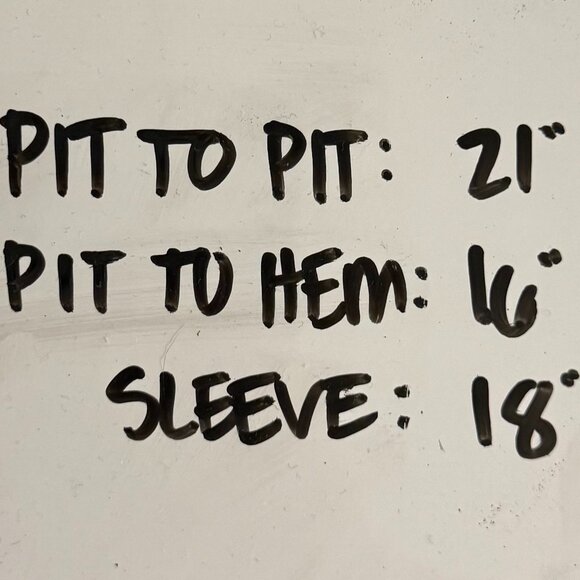 PIT TO PIT: 21"
PIT TO HEM: 16"
SLEEVE: 18"